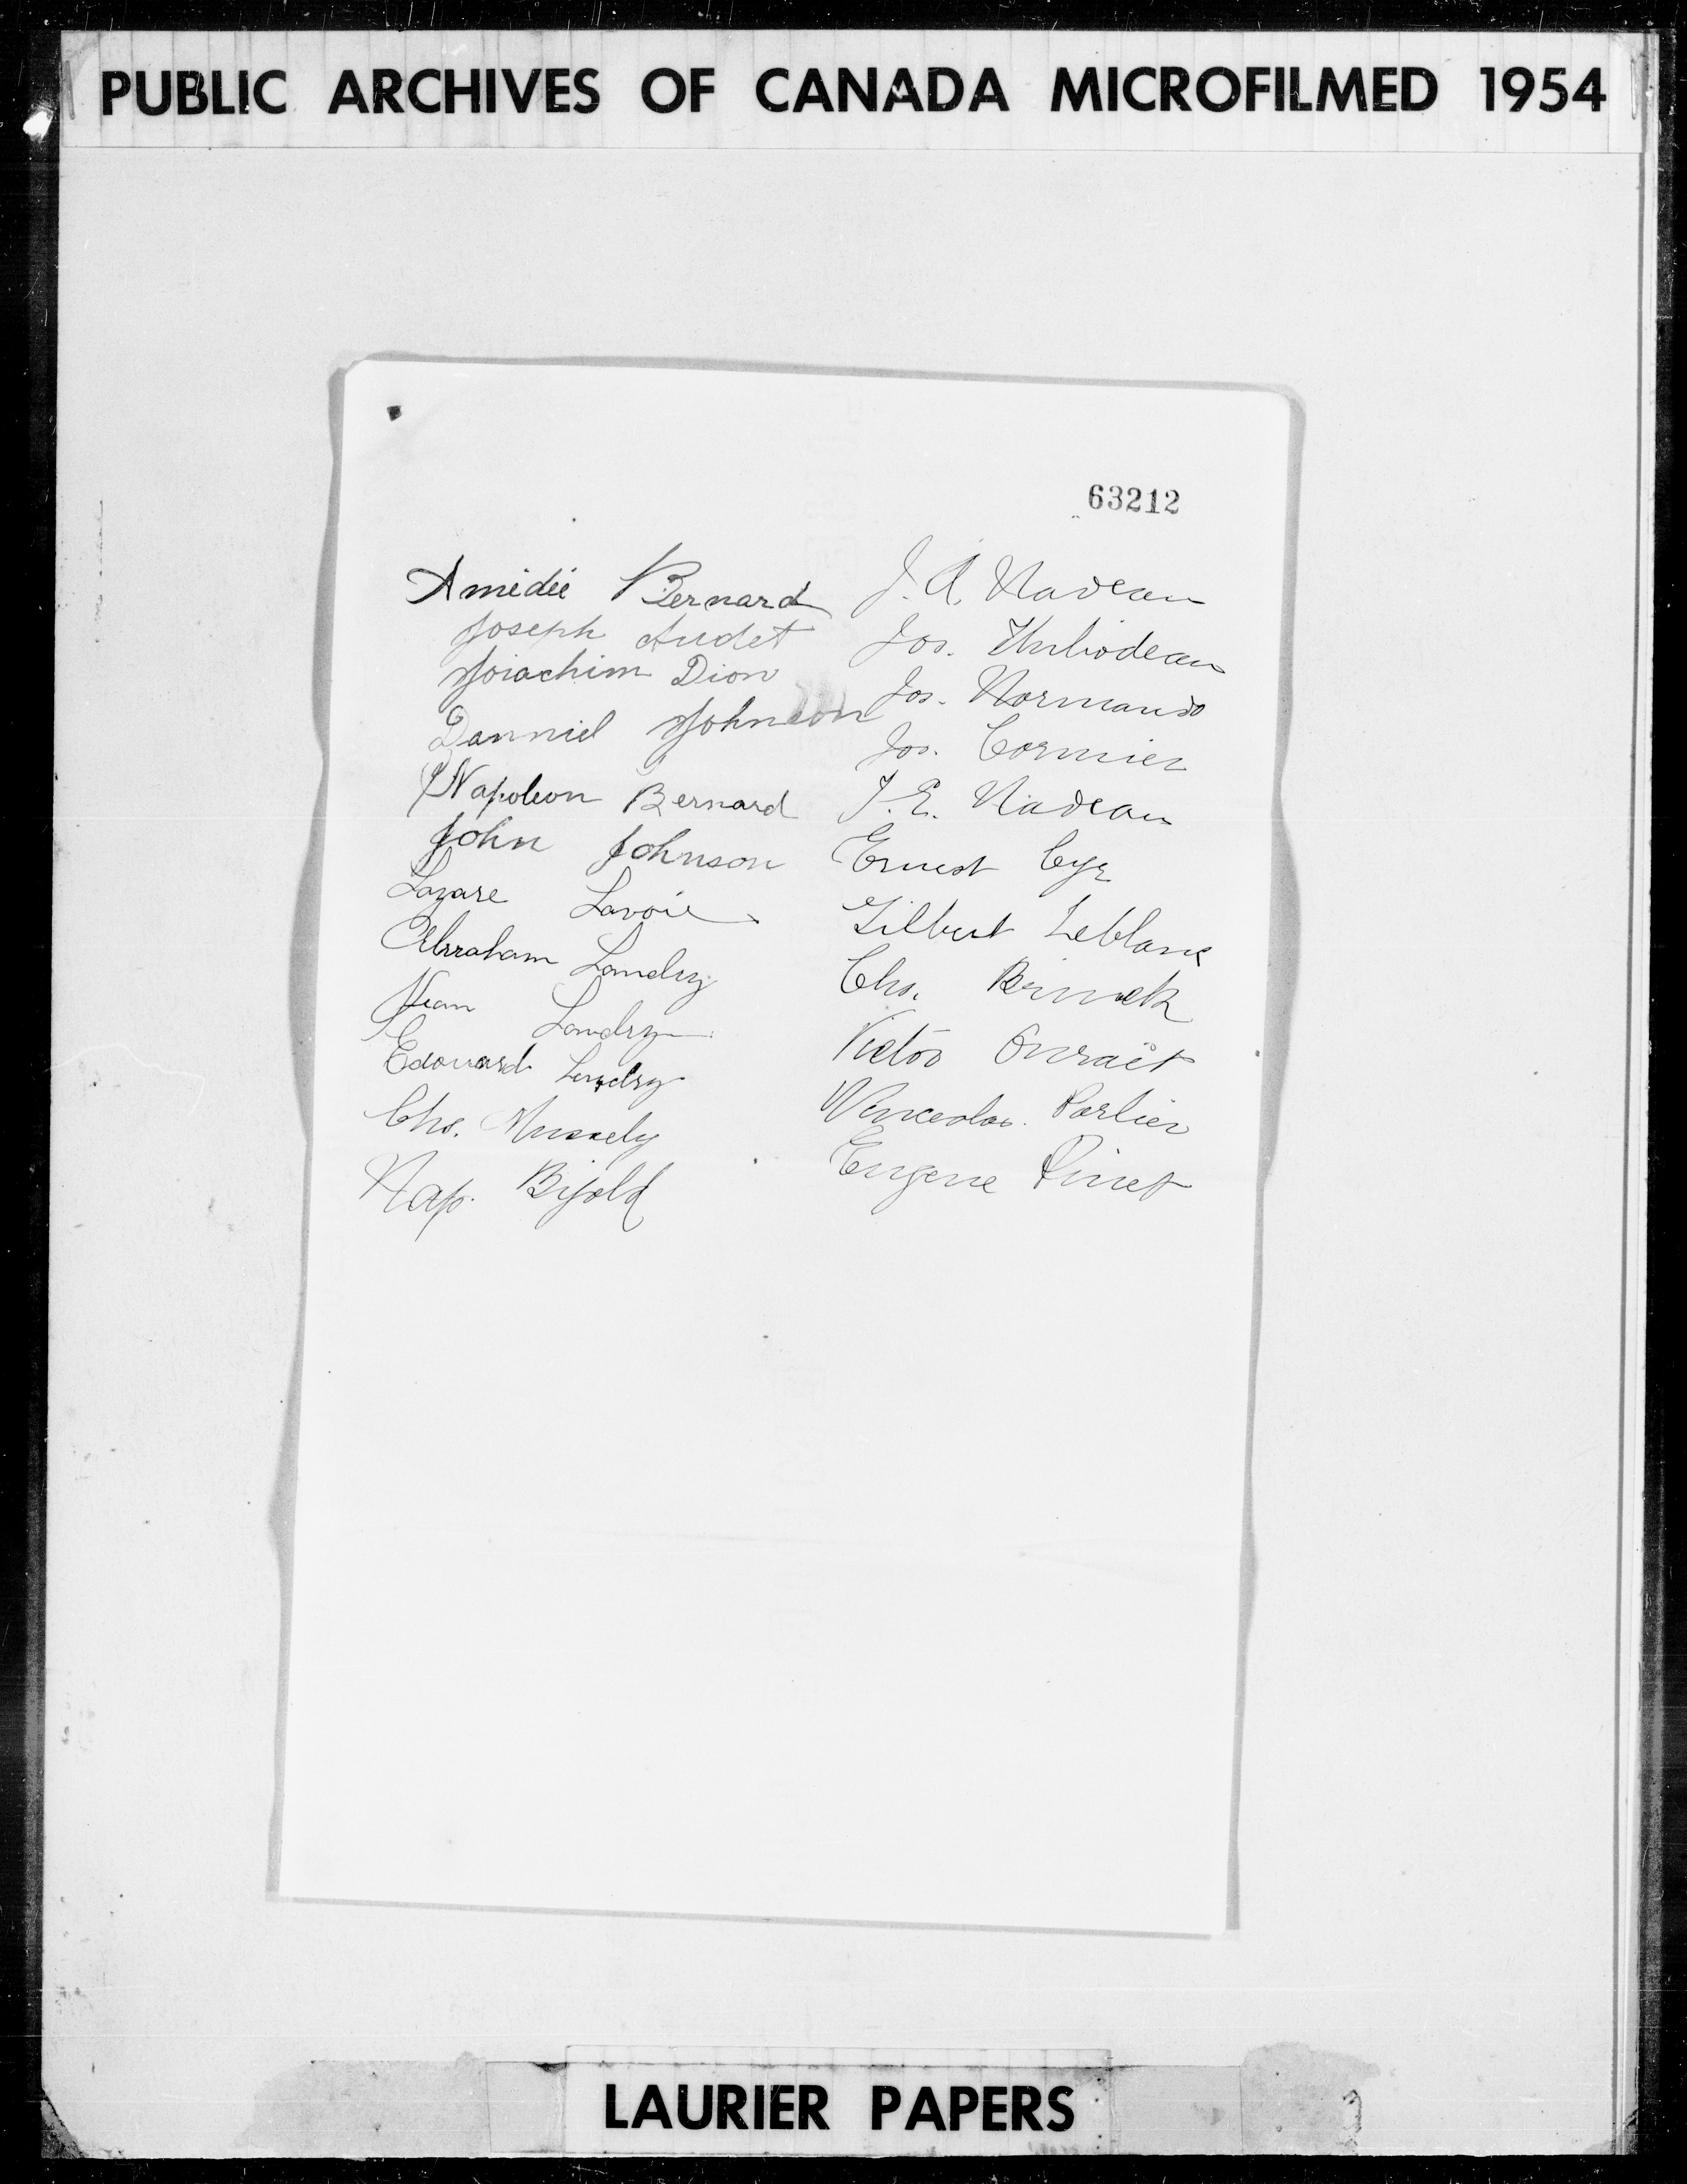 PUBLIC ARCHIVES OF CANADA MICROFILMED 1954
63212
Amédée Bernard
Joseph Audet
Joiachim Dion
Danniel Johnson
Napoleon Bernard
John Johnson
Lazare Lavoie
Abraham Landry
Jean Landry
Edouard Landry
Chs. Mussely
Nap. Bijold
J. A. Nadeau
Jos. Thibodeau
Jos. Normand
Jos. Cormier
J. E. Nadeau
Ernest Cyr
Gilbert Leblanc
Chs.
Victor Ouvrait
Wenceslas Parlier
Eugene Pinet
LAURIER PAPERS